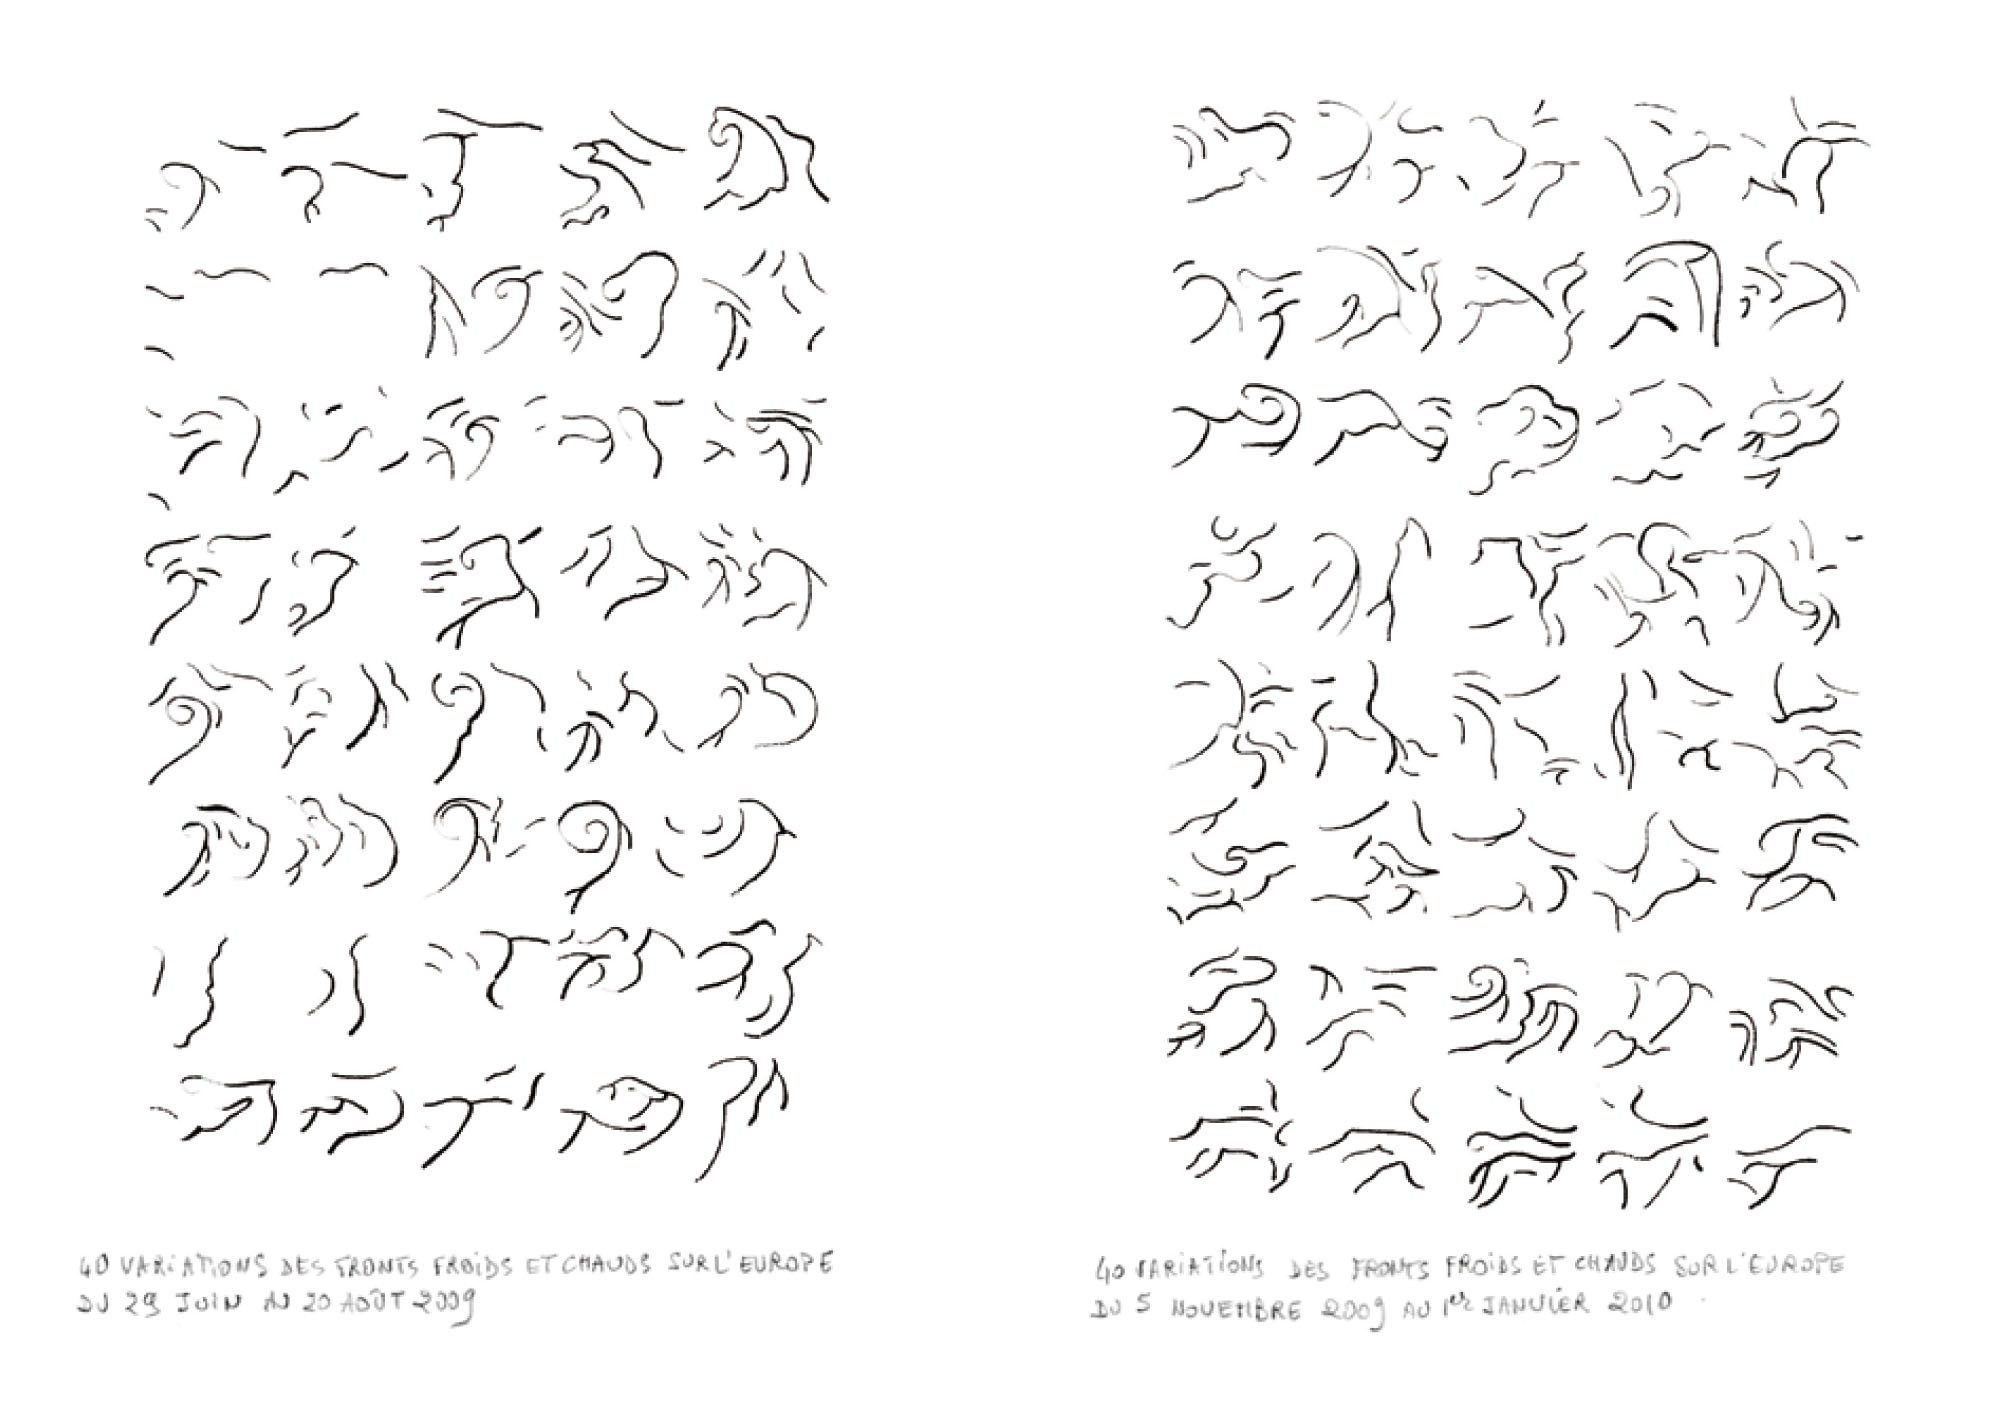 40 VARIATIONS DES FRONTS FROIDS ET CHAUDS SUR L'EUROPE
DU 29 JUIN AU 20 AOÛT 2009
40 VARIATIONS DES FRONTS FROIDS ET CHAUDS SUR L'EUROPE
DU 5 NOVEMBRE 2009 AU 1er JANVIER 2010